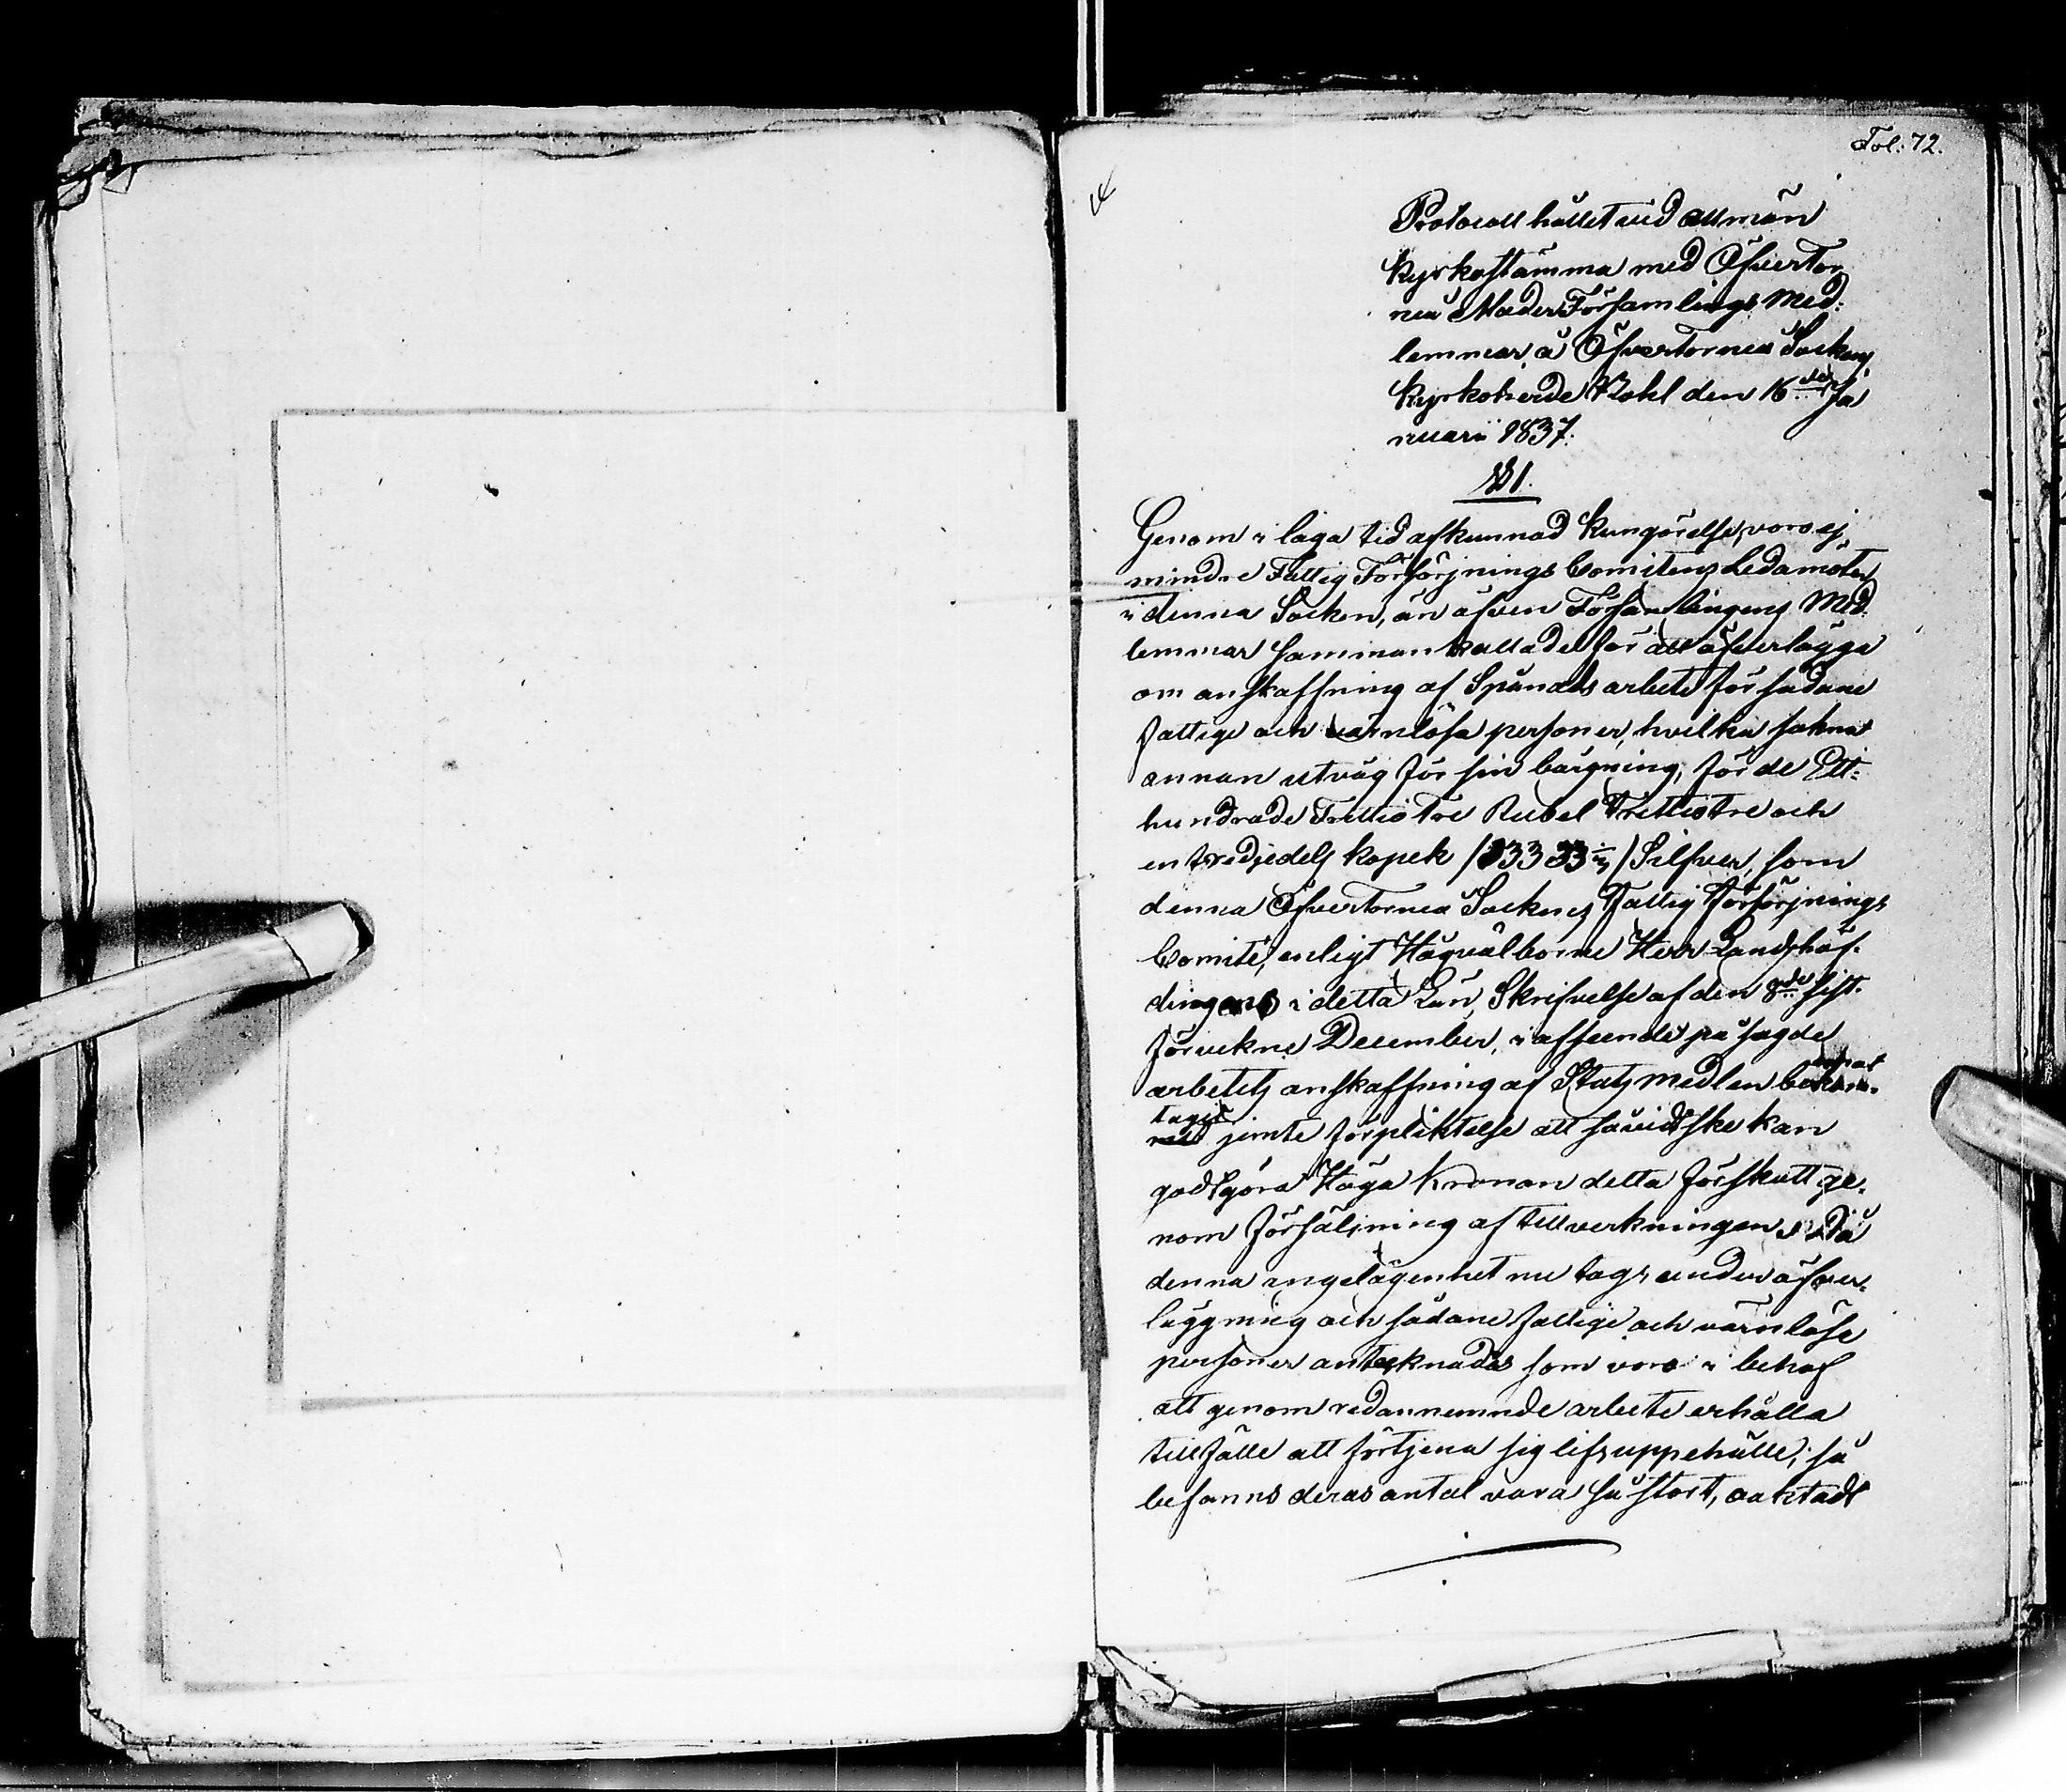 Fol: 72.
Protocoll hållet vid allmän
Kyrkostämma med Öfvertor
neå Moder Församlings Med:
lemmar, å Öfvertorneå Sockens
Kyrkoherde Bohl den 16de Ja
nuarii 1837:
§ 1.
Genom i laga tid afkunnad Kungörelse, voro ej
mindre Fattig Försörjnings Comiténs Ledamöter
i denna Socken, än äfven Församlingens Med:
lemmar sammankallade för att öfverlägga
om anskaffning af Spånads arbete för sådane
fattige och värnlösa personer, hvilka sakna
annan utväg för sin bärgning, för de Ett:
hundrade Trettiotre Rubel Trettiotre och
en tredjedels kopek /133 33 1/3/ Silfver, som
denna Öfvertorneå Sockens Fattig Försörjnings
Comité, enligt Högvälborne Herr Landshöf:
dingens i detta Län, Skrifvelse af den 8de sist:
förvekne December, i afseende på sagde
arbetets anskaffning af Statsmedlen
tagit jemte förpliktelse att såvidt ske kan
godtgöra Höga Kronan detta förskott ge:
nom försäljning af tillverkningen. Då
denna angelägenhet nu togs under öfver:
läggning och sådane fattige och värnlöse
personer antecknades som voro i behof
att genom redannemnde arbete erhålla
tillfälle att förtjena sig lifsuppehälle; så
befanns deras antal vara så stort, oaktadt